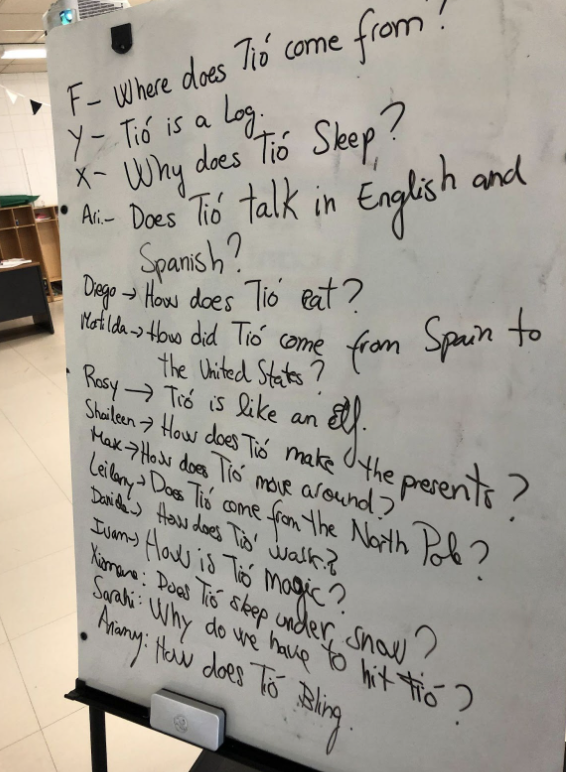 F- Where does Tió come from?
Y- Tió is a Log.
X- Why does Tió Sleep?
Ari.- Does Tió talk in English and
Spanish?
Diego → How does Tió eat?
Matilda → How did Tió come from Spain to
the United States?
Rosy → Tió is like an elf.
Shaileen → How does Tió make the presents?
Max → How does Tió move around?
Leilany → Does Tió come from the North Pole?
Daniela → How does Tió walk?
Ivan → How is Tió magic?
Ximena: Does Tió sleep under snow?
Sarahi: Why do we have to hit tió?
Ariany: How does Tió Bling.